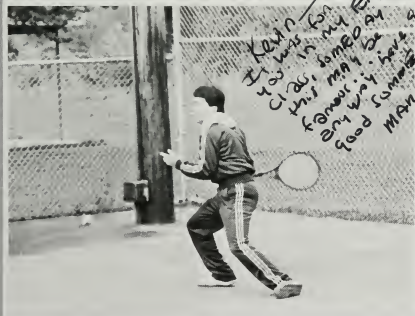 Kevin –
It was fun
you in my E
class, someday
this may be
famous... have
anyway
good summe
MAR